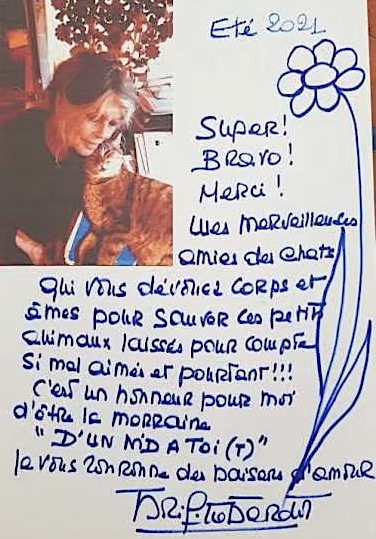 Eté 2021
Super!
Bravo!
Merci!
Mes merveilleuses
amies des chats
qui vous dévouez corps et
âmes pour sauver ces petits
animaux laissés pour compte
si mal aimés et pourtant!!!
C'est un honneur pour moi
d'être la marraine
"D'UN NID A TOI (T)"
Je vous ronronne des baisers d'amour
Brigitte Bardot